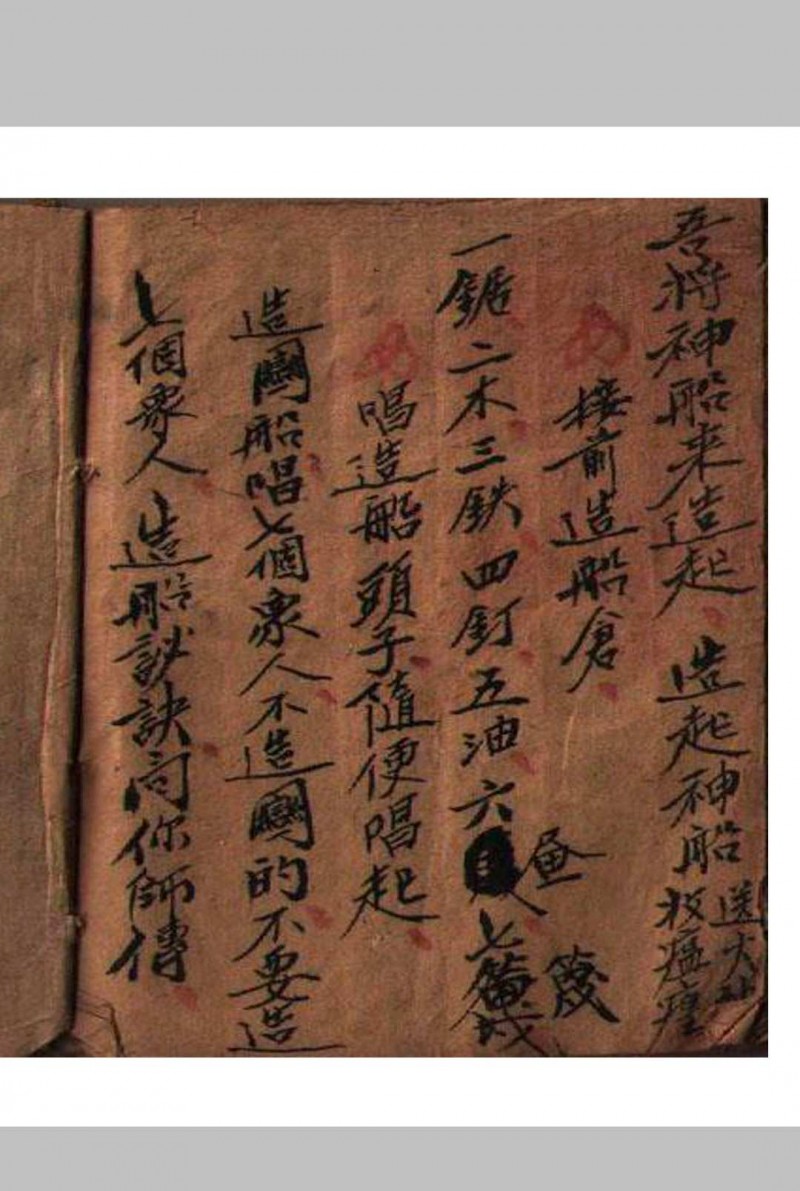 吾將神船来造起造起神船送大神收瘟瘟
接前造船倉
一鋸二木三鉄四釘五油六蚕七篾
唱造船頭子隨便唱起
造圝船唱七個衆人不造圝的不要造
七個衆人造船訣訣问你師傳